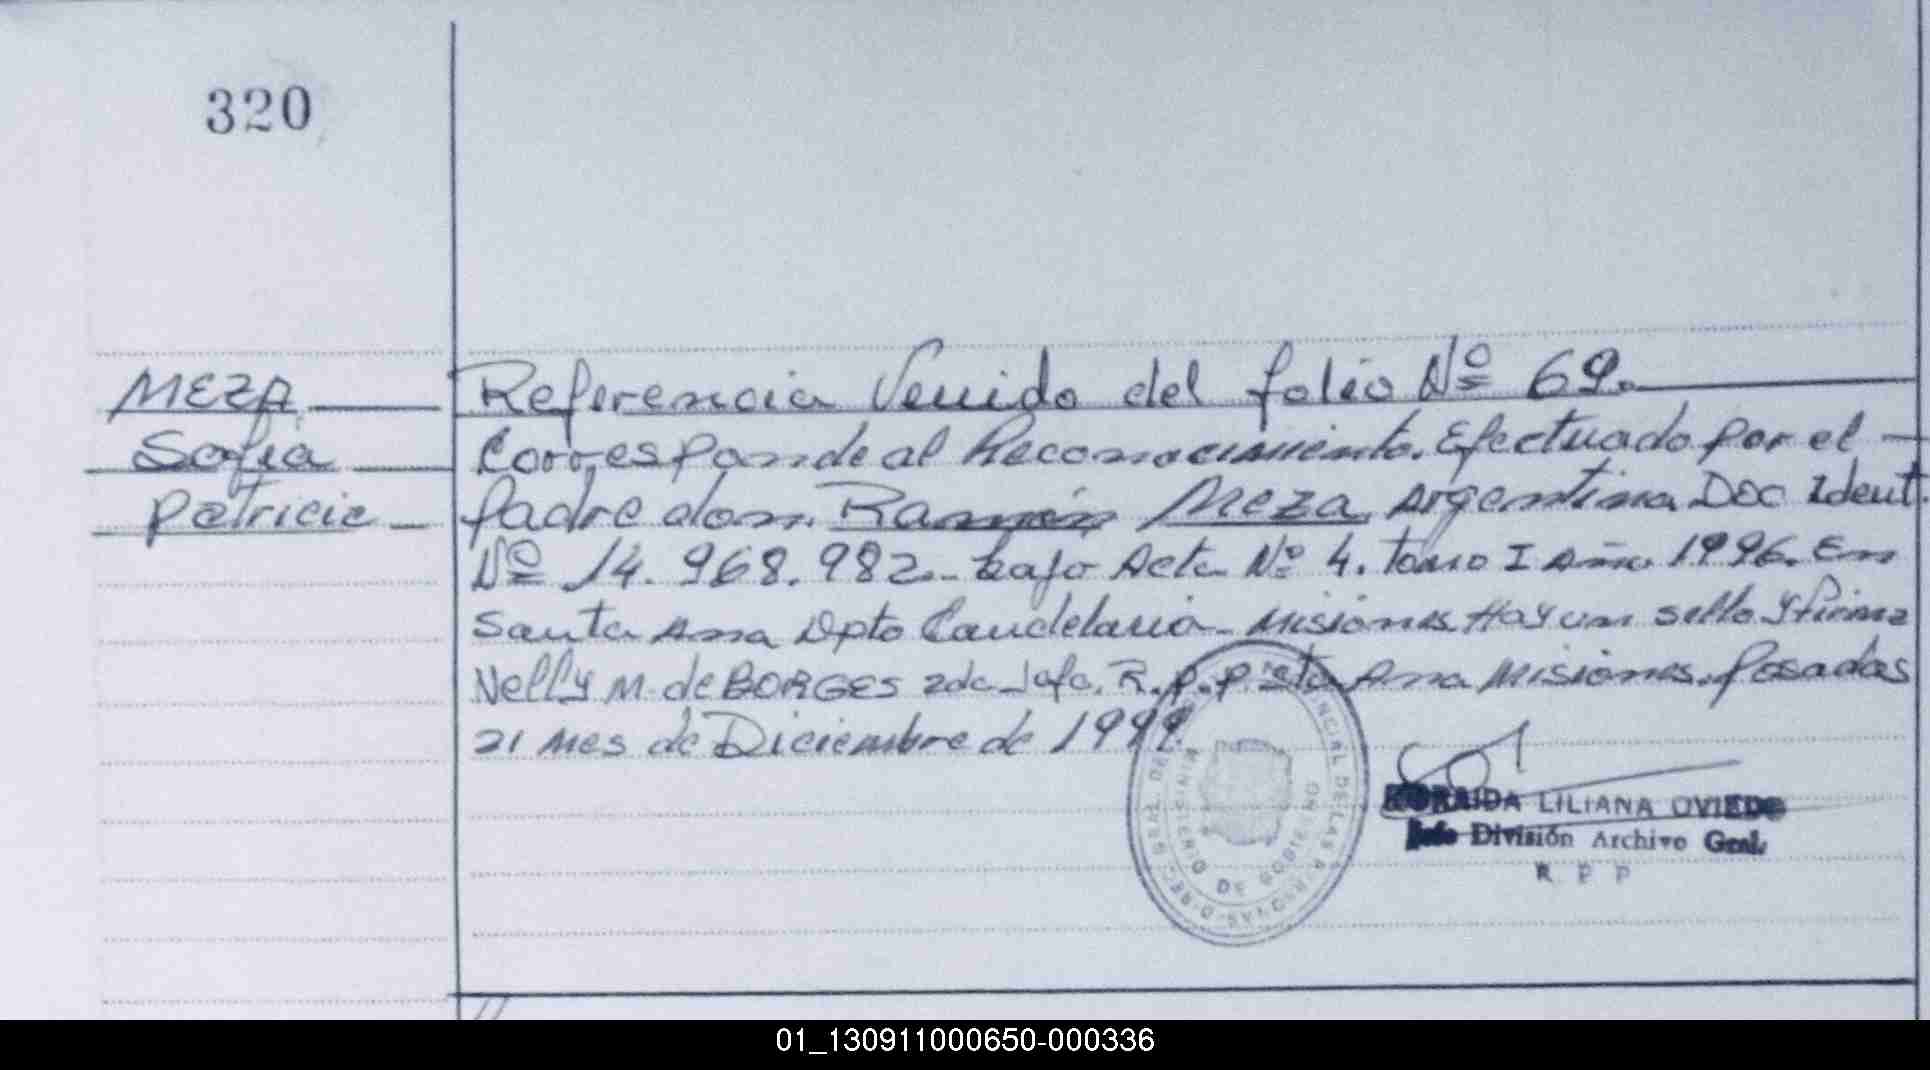 320
MEZA
Sofia
Patricia
Referencia Venido del folio Nº 69.
Corresponde al Reconocimiento. Efectuado por el
padre don. Ramón Meza Argentina Doc Ident
Nº 14.968.982.- bajo Acta Nº 4. Tomo I Año 1996. En
Santa Ana Dpto Candelaria - Misiones. Hay un sello y firma
Nelly M. de BORGES 2da Jefa. R.P.P. Sta Ana Misiones. Posadas
21 mes de Diciembre de 1999.
MINISTERIO DE GOBIERNO
ORAIDA LILIANA OVIEDO
Jefe División Archivo Gral.
R P P
01_130911000650-000336